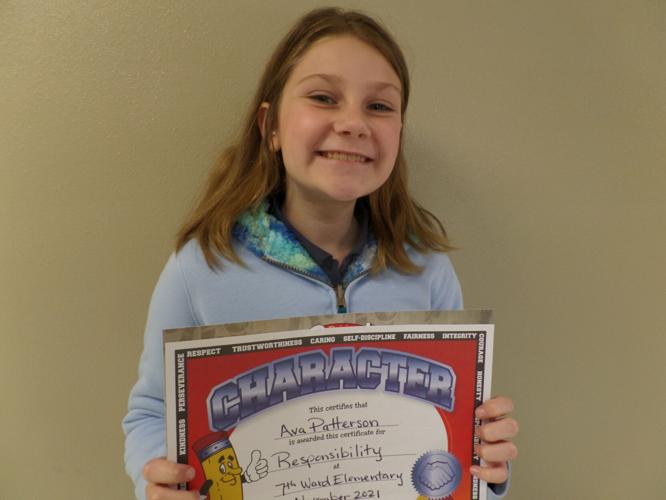 RESPECT TRUSTWORTHINESS CARING SELF-DISCIPLINE FAIRNESS INTEGRITY
KINDNESS PERSEVERANCE
COURAGE HONESTY
CHARACTER
This certifies that
Ava Patterson
is awarded this certificate for
Responsibility
at
7th Ward Elementary
November 2021